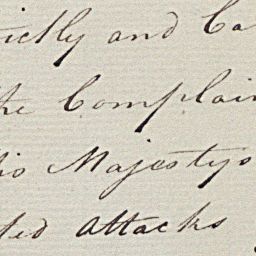 ickly and Ca
he Complain
his Majestys
ted attacks